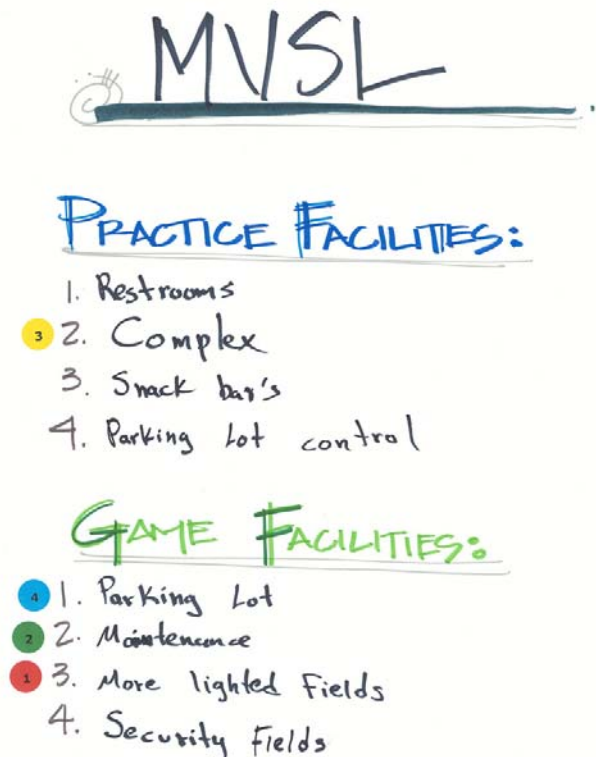 MVSL
PRACTICE FACILITIES:
1. Restrooms
3 2. Complex
3. Snack bar's
4. Parking Lot control
GAME FACILITIES:
4 1. Parking Lot
2 2. Maintenance
1 3. More lighted Fields
4. Security Fields